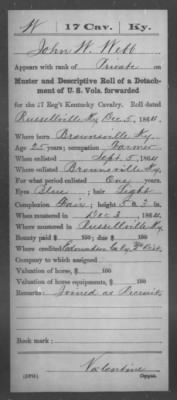 W | 17 Cav. | Ky.
John W. Webb
Appears with rank of Private on
Muster and Descriptive Roll of a Detachment of U. S. Vols. forwarded
for the 17 Reg't Kentucky Cavalry. Roll dated
Russellville Ky Dec 5, 1864.
Where born Brownsville Ky.
Age 25 years; occupation Farmer
When enlisted Sept. 5, 1864.
Where enlisted Brownsville Ky.
For what period enlisted One years.
Eyes Blue; hair Light
Complexion Fair; height 5 ft. in.
When mustered in Dec 3, 1864.
Where mustered in Russellville Ky.
Bounty paid $ 100; due $ 100
Where credited Edmonson Co Ky Dist.
Company to which assigned
Valuation of horse, $ 100
Valuation of horse equipments, $ 100
Remarks: Joined as Recruit
Book mark:
Valentine
Copyist.